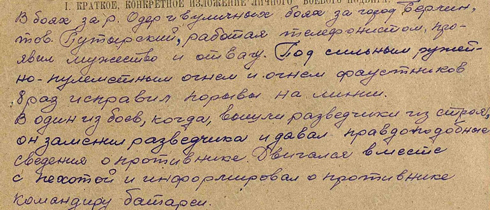 I. КРАТКОЕ, КОНКРЕТНОЕ ИЗЛОЖЕНИЕ ЛИЧНОГО БОЕВОГО ПОДВИГА
В боях за р. Одер и в уличных боях за город Берлин,
тов. Бутырский, работая телефонистом, про-
явил мужество и отвагу. Под сильным ружей-
но-пулеметным огнем и огнем фаустников
8 раз исправил порывы на линии.
В один из боев, когда, вышли разведчики из строя,
он заменил разведчика и давал правдоподобные
сведения о противнике. Двигался вместе
с пехотой и информировал о противнике
командиру батареи.